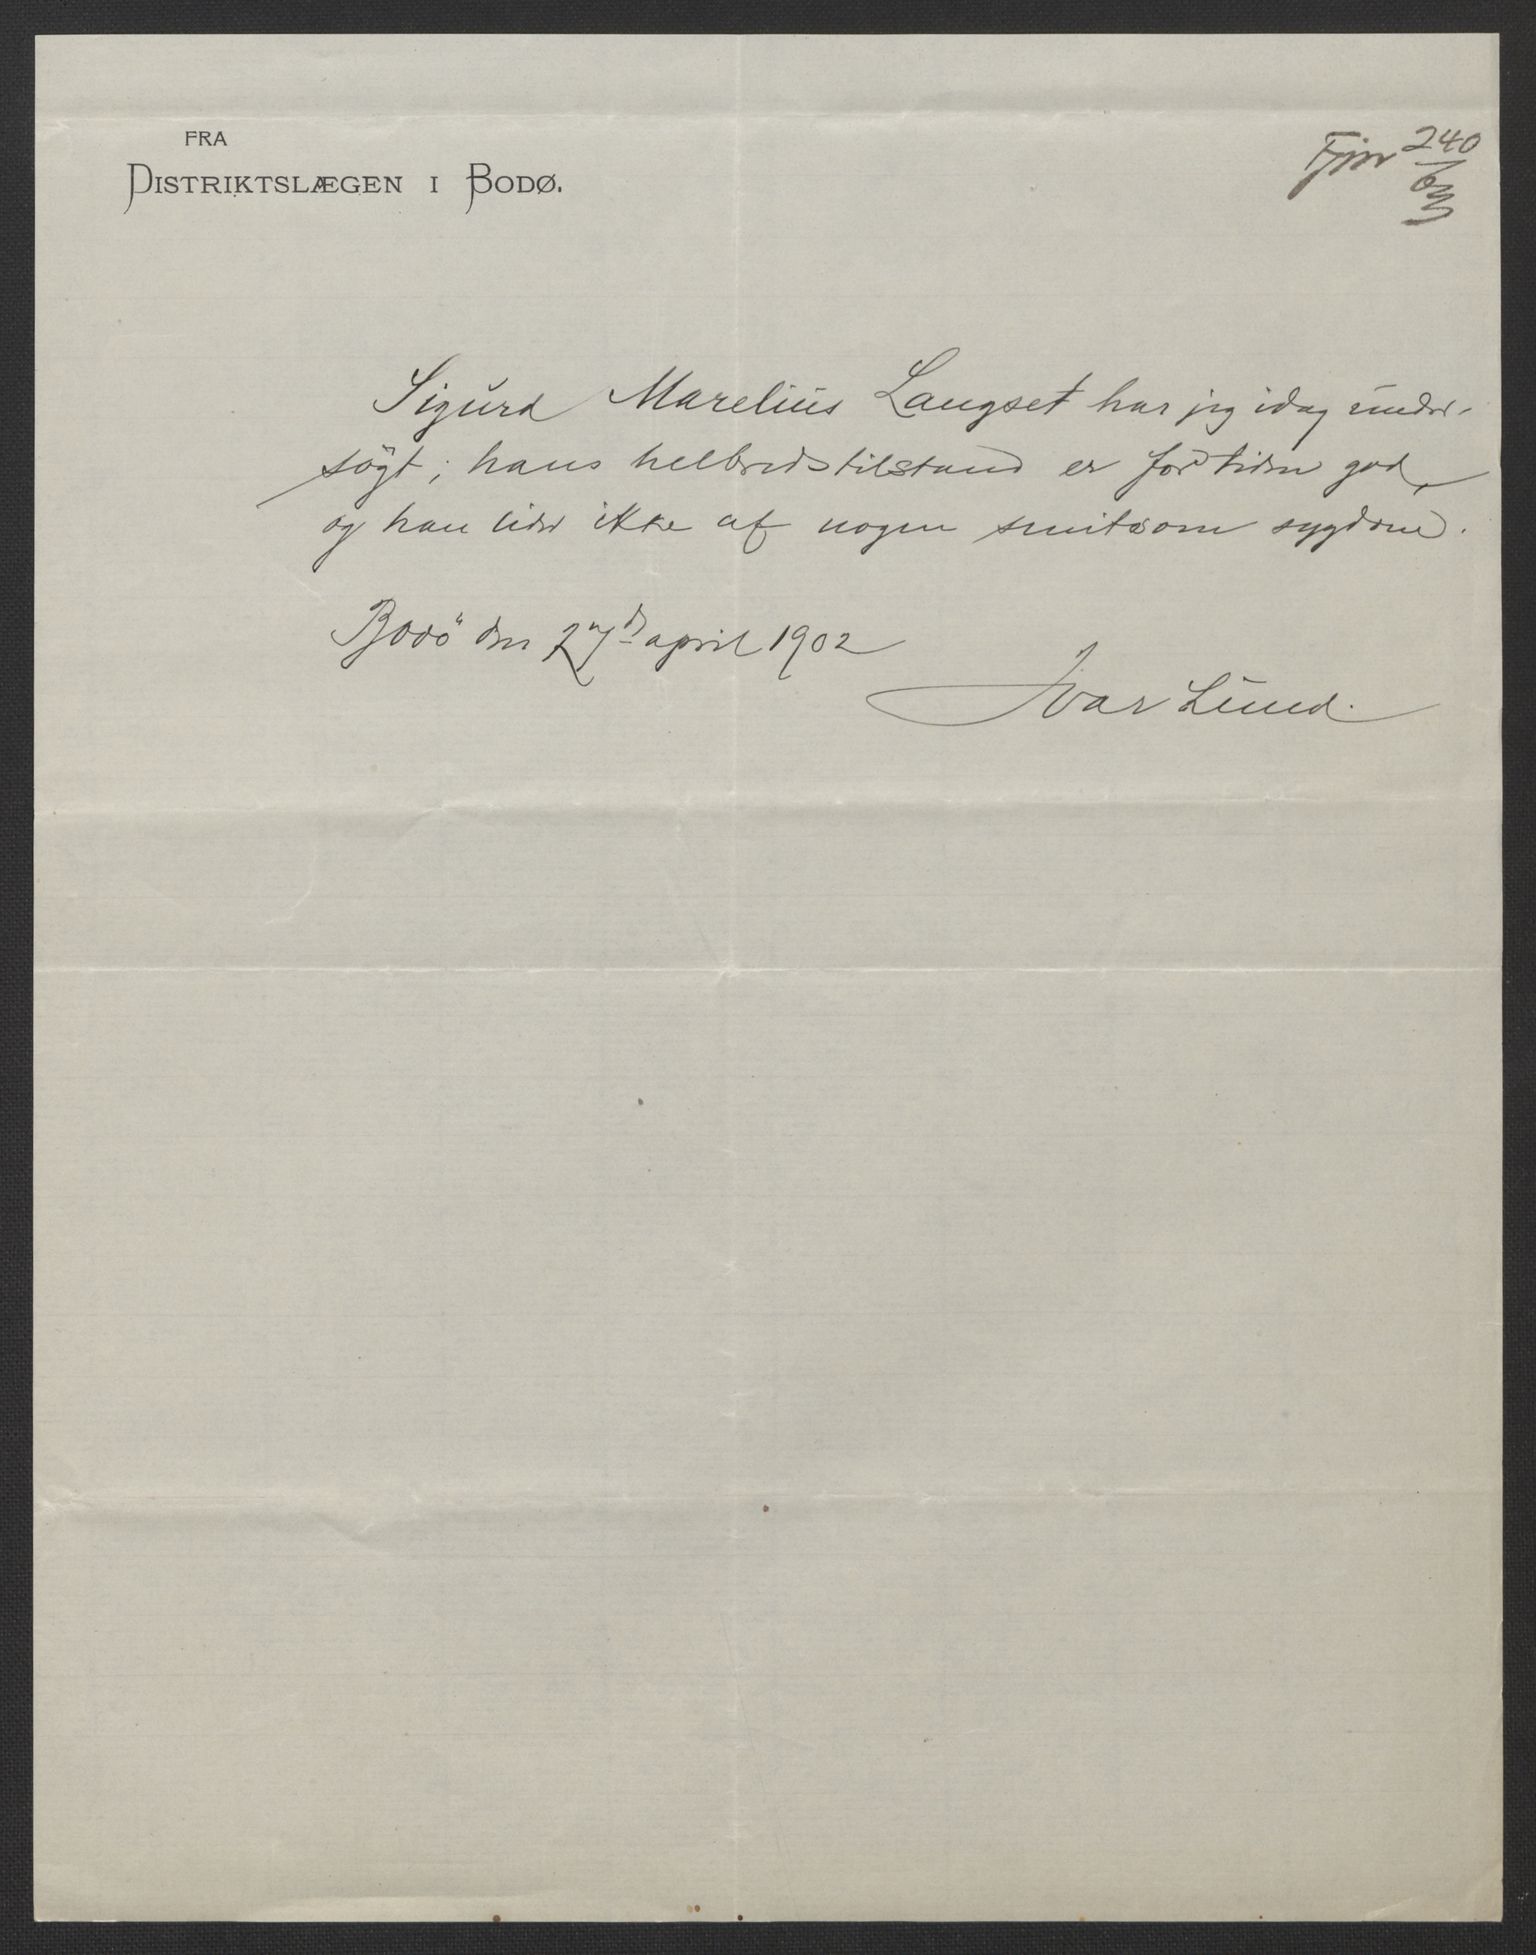 FRA
DISTRIKTSLÆGEN I BODØ.
240
Sigurd Marelius Langset har jeg idag under-
søgt; hans helbredstilstand er for tiden god,
og han lider ikke af nogen smitsom sygdom.
Bodö den 27d april 1902
Ivar Lund.